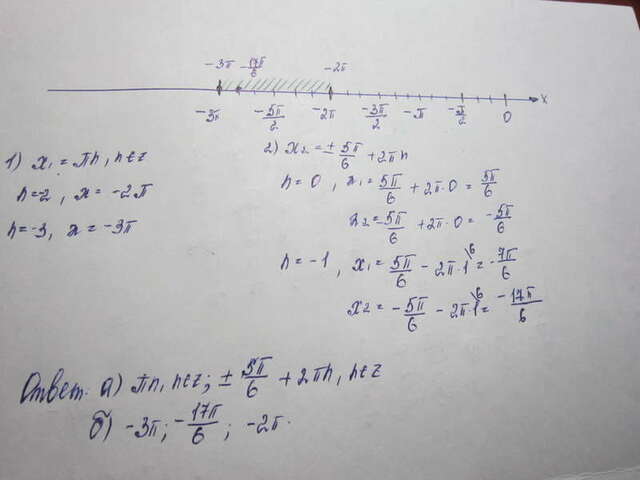 -3π -17π/6 -2π
-3π -5π/2 -2π -3π/2 -π -π/2 0 x
1) x₁ = πn, n∈z
n=-2, x = -2π
n=-3, x = -3π
2) x₂ = ± 5π/6 + 2πn
n = 0, x₁ = 5π/6 + 2π·0 = 5π/6
x₂ = -5π/6 + 2π·0 = -5π/6
n = -1, x₁ = 5π/6 - 2π·1\6 = -7π/6
x₂ = -5π/6 - 2π·1\6 = -17π/6
Ответ: а) πn, n∈z; ± 5π/6 + 2πn, n∈z
б) -3π; -17π/6; -2π.